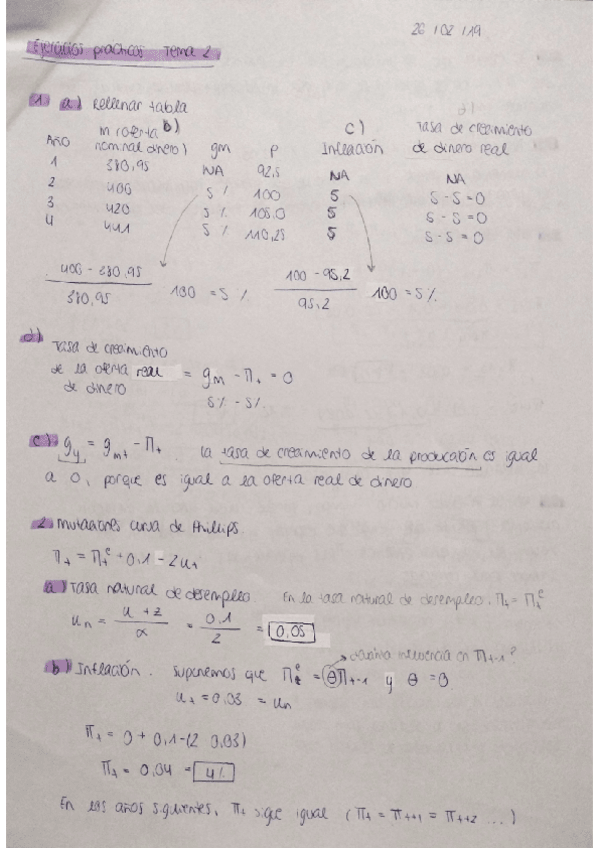 26/02/19
Ejercicios practicos Tema 2.
1) a) Rellenar tabla
AÑO m (oferta nominal dinero) b) gm P c) Inflación d) Tasa de crecimiento de dinero real
1 380,95 NA 92,5 NA NA
2 400 5% 100 5 5-5=0
3 420 5% 105.0 5 5-5=0
4 441 5% 110,25 5 5-5=0
400 - 380,95 / 380,95 100 = 5% 100 - 95,2 / 95,2 100 = 5%
d) Tasa de crecimiento
de la oferta real = gm - Πt = 0
de dinero 5% - 5%.
c) gy = gmt - Πt la tasa de crecimiento de la producción es igual
a 0, porque es igual a la oferta real de dinero
2 Mutaciones curva de Phillips.
Πt = Πt^e + 0,1 - 2ut
a) Tasa natural de desempleo. En la tasa natural de desempleo, Πt = Πt^e
un = u + z / α = 0,1 / 2 = 0,05
b) Inflación. Suponemos que Πt^e = θΠt-1 y θ = 0
influencia en Πt-1?
ut = 0,03 = un
Πt = 0 + 0,1 - (2 0,03)
Πt = 0,04 = 4%
En los años siguientes, Πt sigue igual (Πt = Πt+1 = Πt+2 ...)